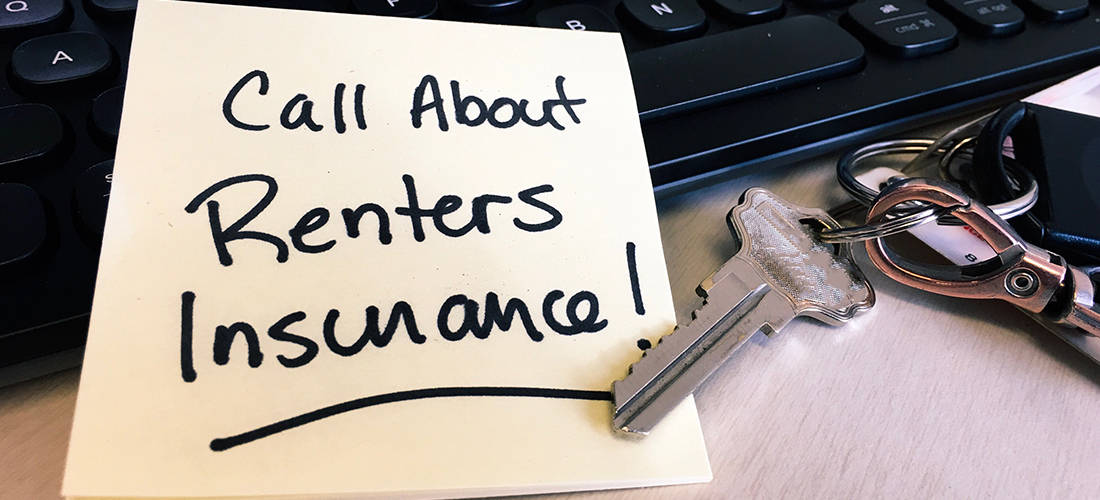 Q
A
S
B
N
alt
cmd ⌘
alt
opt
Call About
Renters
Insurance!